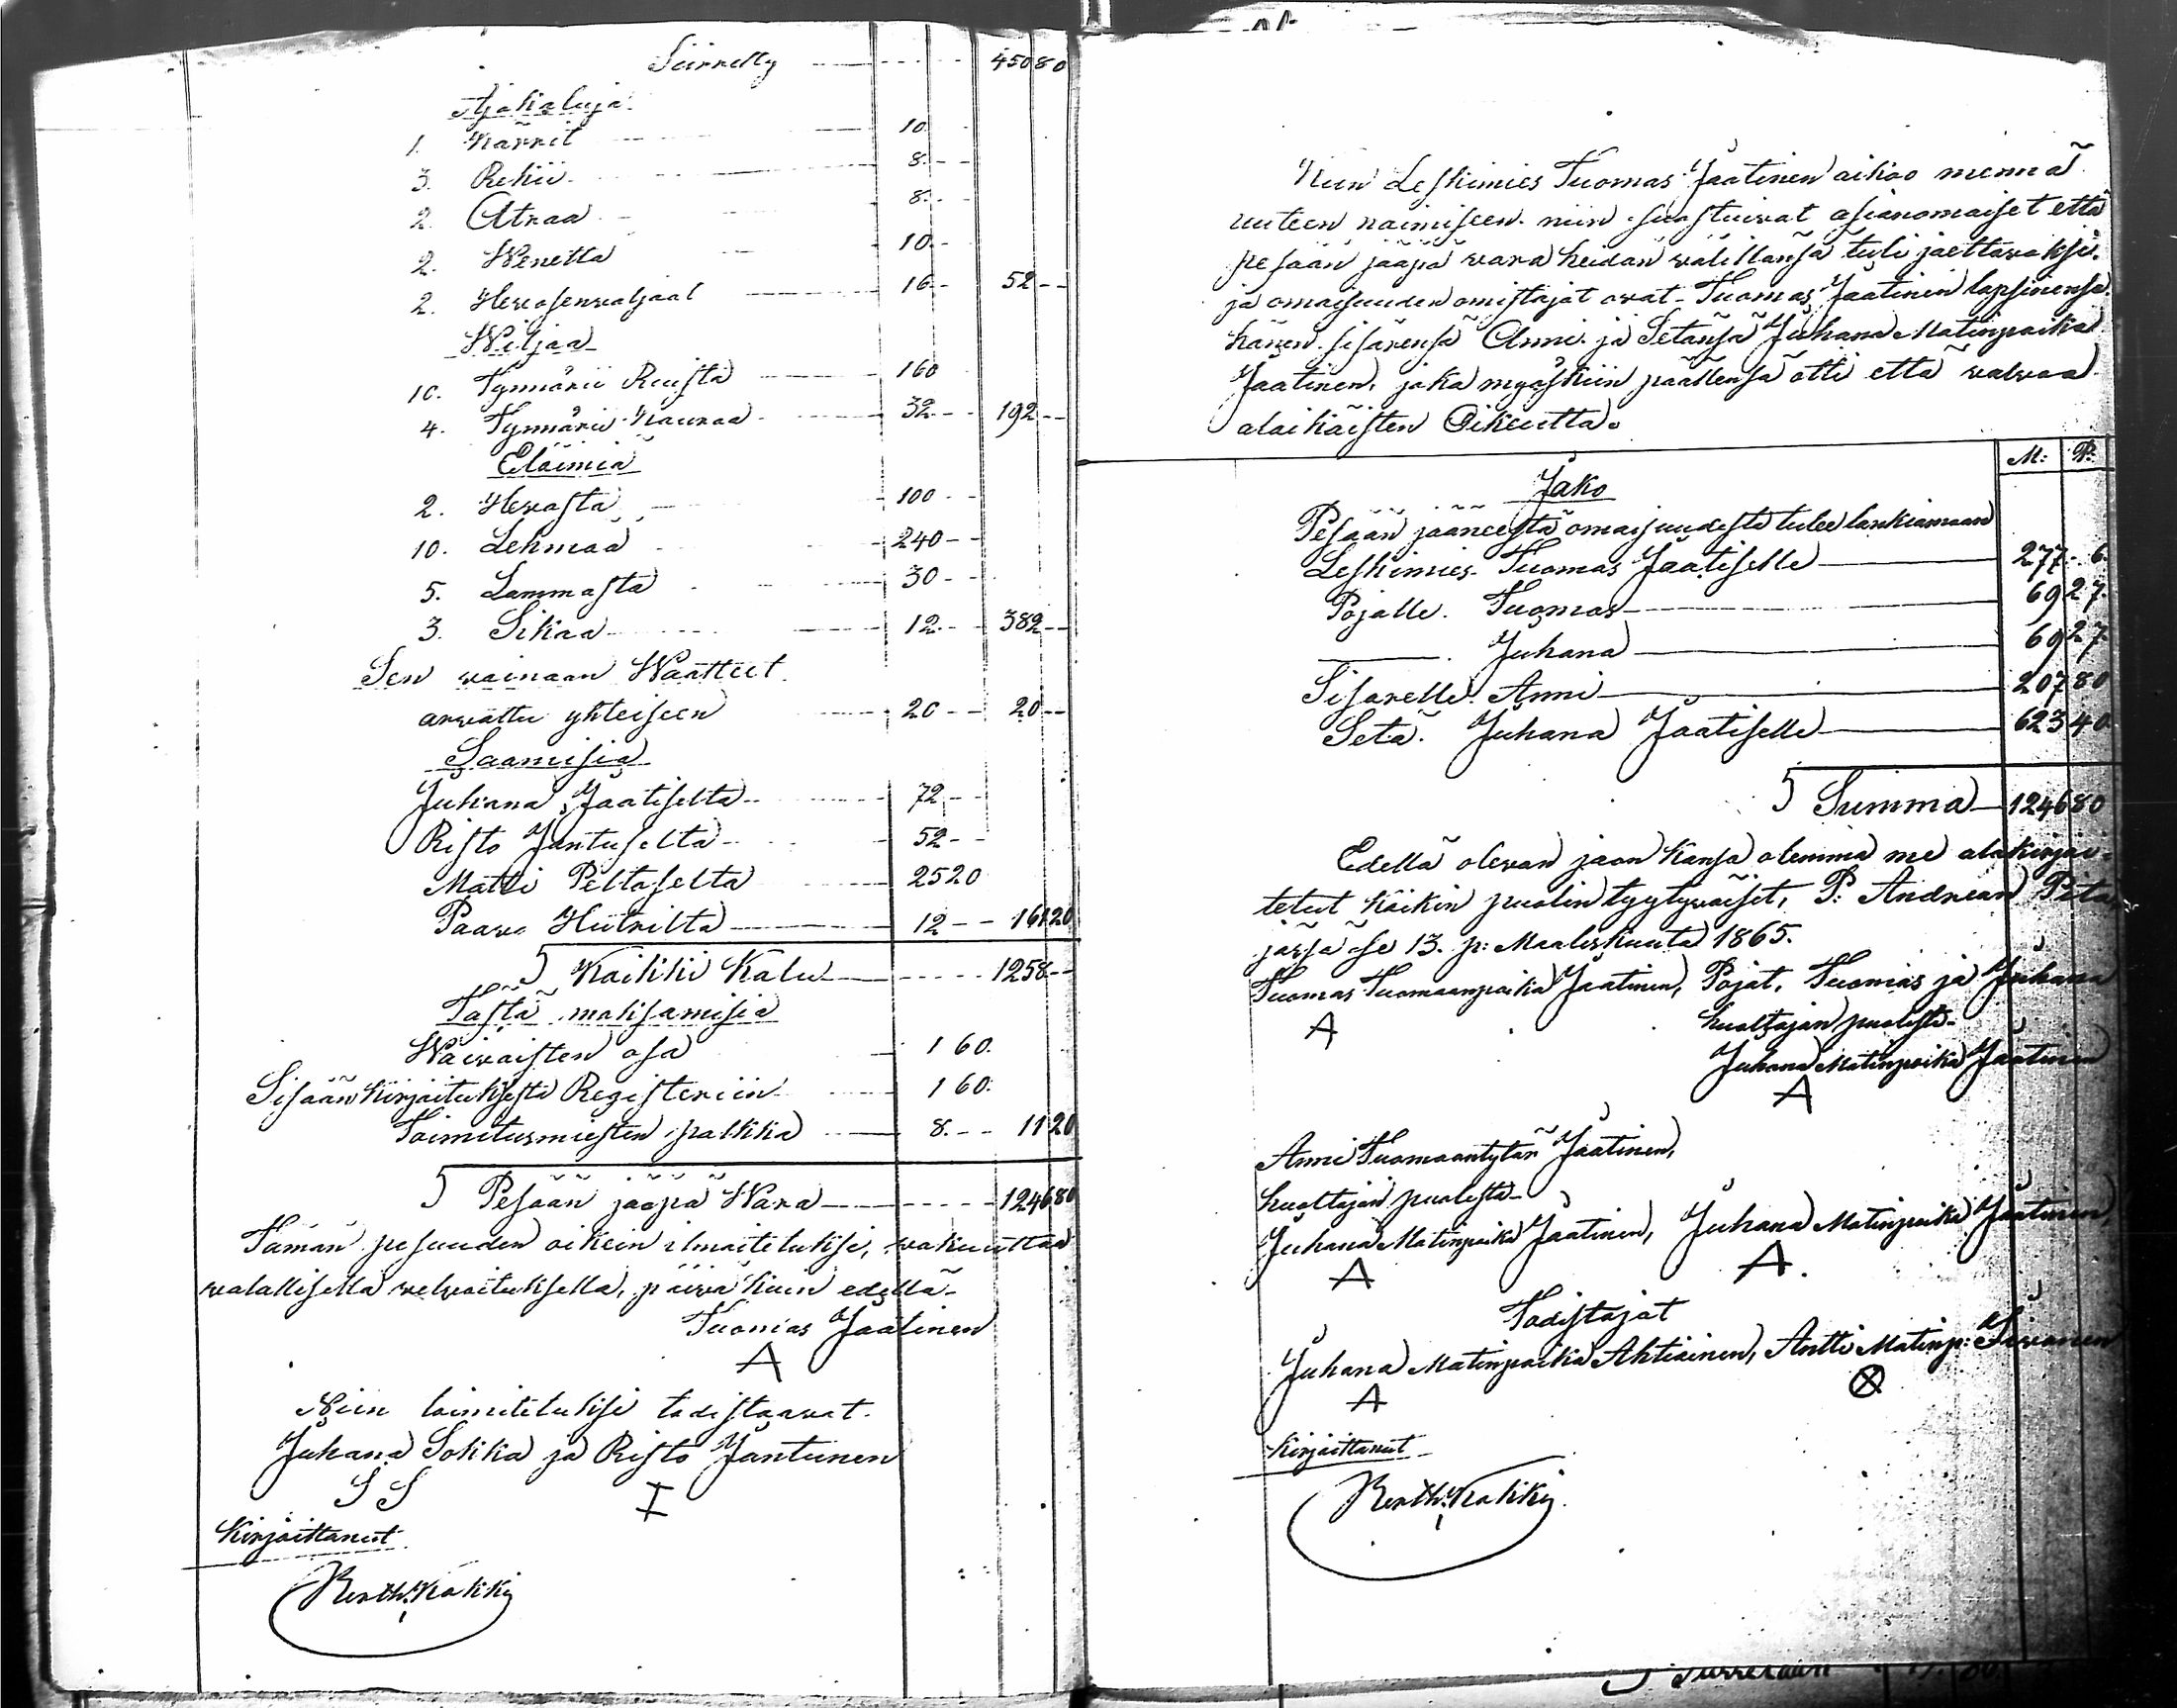 Siirretty 450 80
Ajokaluja
1. Kärrit 10
3. Rekiä 8
2. Atraa 8
2. Wenettä 10
2. Hewosenwaljaat 16 52
Wiljaa
10. Tynnäriä Ruista 160
4. Tynnäriä Kauraa 32 192
Eläimiä
2. Hewosta 100
10. Lehmää 240
5. Lammasta 30
3. Sikaa 12 382
Sen wainaan Waatteet
arwattu yhteiseen 20 20
Saamisia
Juhana Jäätiseltä 72
Risto Jantuselta 52
Matti Peltoselta 25 20
Paawo Hiitrilta 12 161 20
S Kaikki Kalu 1258
Tästä maksamisia
Waiwaisten osa 1 60.
Sisään kirjoituksesta Registeriin 1 60.
Toimitusmiesten palkka 8 11 20
S Pesään jääpä Wara 1246 80
Tämän pesuuden oikein ilmoitetuksi, wakuuttaa
walallisella welwoituksella, päiwä kuin edellä
Tuomas Jäätinen
A
Niin toimitetuksi todistaawat.
Juhana Sokka ja Risto Jantunen
S S I
Kirjoittanut
Berth: Kokki
Kuin Leskimies Tuomas Jäätinen aikoo mennä
uuteen naimiseen niin suostuiwat asianomaiset että
pesään jääpä wara heidän wälillänsä tuli jaettawaksi.
ja omaisuuden omistajat owat Tuomas Jäätinen lapsinensa.
hänen sisärensä Anni ja Setänsä Juhana Matinpoika
Jäätinen, joka myöskin päällensä otti että walwoa
alaikäisten Oikeutta.
M: P:
Jako
Pesään jääneestä omaisuudesta tulee lankiamaan
Leskimies Tuomas Jäätiselle 277 6.
Pojalle. Tuomas 69 27.
. Juhana 69 27
Sisarelle. Anni 207 80
Setä. Juhana Jäätiselle 623 40
S Summa 1246 80
Edellä olewan jaon kansa olemma me alakirjoi-
tetut kaikin puolin tyytywäiset, P: Andrean Pitä
jässä se 13. p: Maaliskuuta 1865.
Tuomas Tuomaanpoika Jäätinen, Pojat, Tuomas ja Juhana
A huoltajan puolesta
Juhana Matinpoika Jäätinen
A
Anni Tuomaantytär Jäätinen,
huoltajan puolesta
Juhana Matinpoika Jäätinen, Juhana Matinpoika Jäätinen,
A A.
Todistajat
Juhana Matinpoika Ahtiainen, Antti Matinp: Siwonen
A
Kirjoittanut
Berth: Kokki